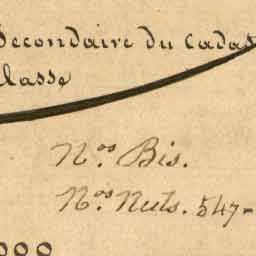 Secondaire du Cadas
Classe
Nos Bis.
Nos Nuls. 547-
000